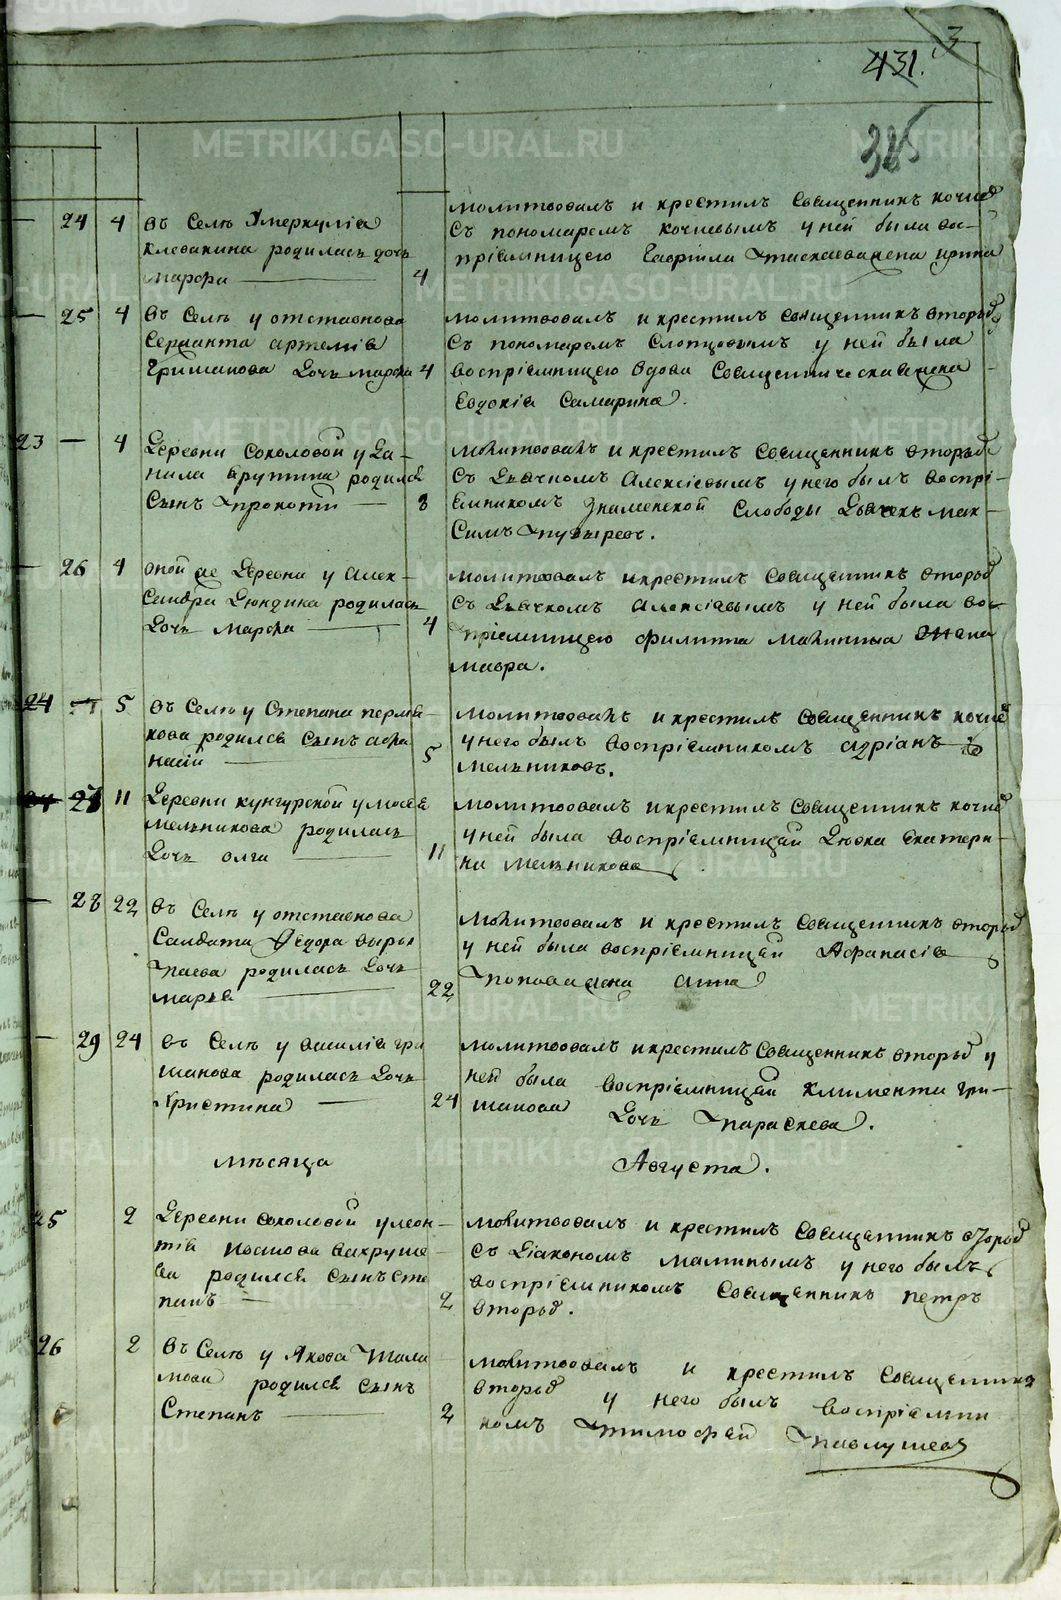 431. 3
325
24 4 въ Селѣ у меркулія
клевакина родилась дочь
марѳа 4
молитвовалъ и крестилъ священникъ кочнев
съ пономаремъ кочневымъ у ней была вос-
пріемницею Гавріила жена ирина
25 4 въ Селѣ у отставнова
Сержанта артемія
Гришанова дочь марѳа 4
молитвовалъ и крестилъ священникъ вторыв
съ пономаремъ Слопцовымъ у ней была
воспріемницею вдова Священническая жена
Евдокія Самарина.
23 — 4 деревни соколовой у да-
нила крутина родился
сынъ прокопій 8
молитвовалъ и крестилъ священникъ вторыв
съ дьячкомъ Алексіевымъ у него былъ воспрі-
емникомъ знаменской слободы дьячекъ мак-
симъ пузыревъ.
— 26 4 оной же деревни у алек-
сандра дюндика родилась
дочь марѳа 4
молитвовалъ и крестилъ священникъ вторыв
съ дьячкомъ алексіевымъ у ней была вос-
пріемницею филиппа жена
мавра.
24 5 въ Селѣ у Степана перми-
кова родился сынъ афа
насій 5
молитвовалъ и крестилъ священникъ кочнев
у него былъ воспріемникомъ адріанъ
мельниковъ.
27 11 деревни кунгурской у моисея
мельникова родилась
дочь олга 11
молитвовалъ и крестилъ священникъ кочнев
у ней была воспріемницей девка екатери-
на мельникова
— 28 22 въ Селѣ у отставнова
Салдата Ѳедора выры
паева родилась дочь
марья 22
молитвовалъ и крестилъ священникъ вторыв
у ней была воспріемницей Афанасія
попова жена анна
— 29 24 въ Селѣ у василія гри
шанова родилась дочь
христина 24
молитвовалъ и крестилъ священникъ вторыв у
ней была воспріемницей климента гри-
шанова дочь параскева.
мѣсяца Августа.
25 2 деревни соколовой у леон-
тія вахруше-
ва родился сынъ сте
панъ 2
молитвовалъ и крестилъ священникъ вторыв
съ діакономъ маминымъ у него былъ
воспріемникомъ священникъ петръ
вторыв.
26 2 въ Селѣ у Якова шала
мова родился сынъ
Степанъ 2
молитвовалъ и крестилъ священникъ
вторыв у него былъ воспріемни
комъ тимофей павлушевъ
METRIKI.GASO-URAL.RU